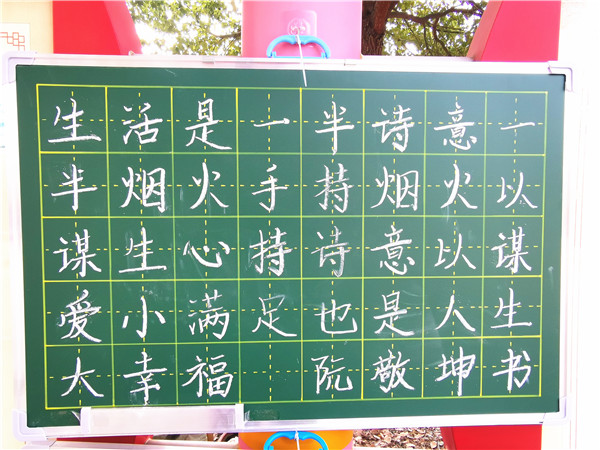 生活是一半诗意一
半烟火手持烟火以
谋生心持诗意以谋
爱小满足也是人生
大幸福 阮敬坤书